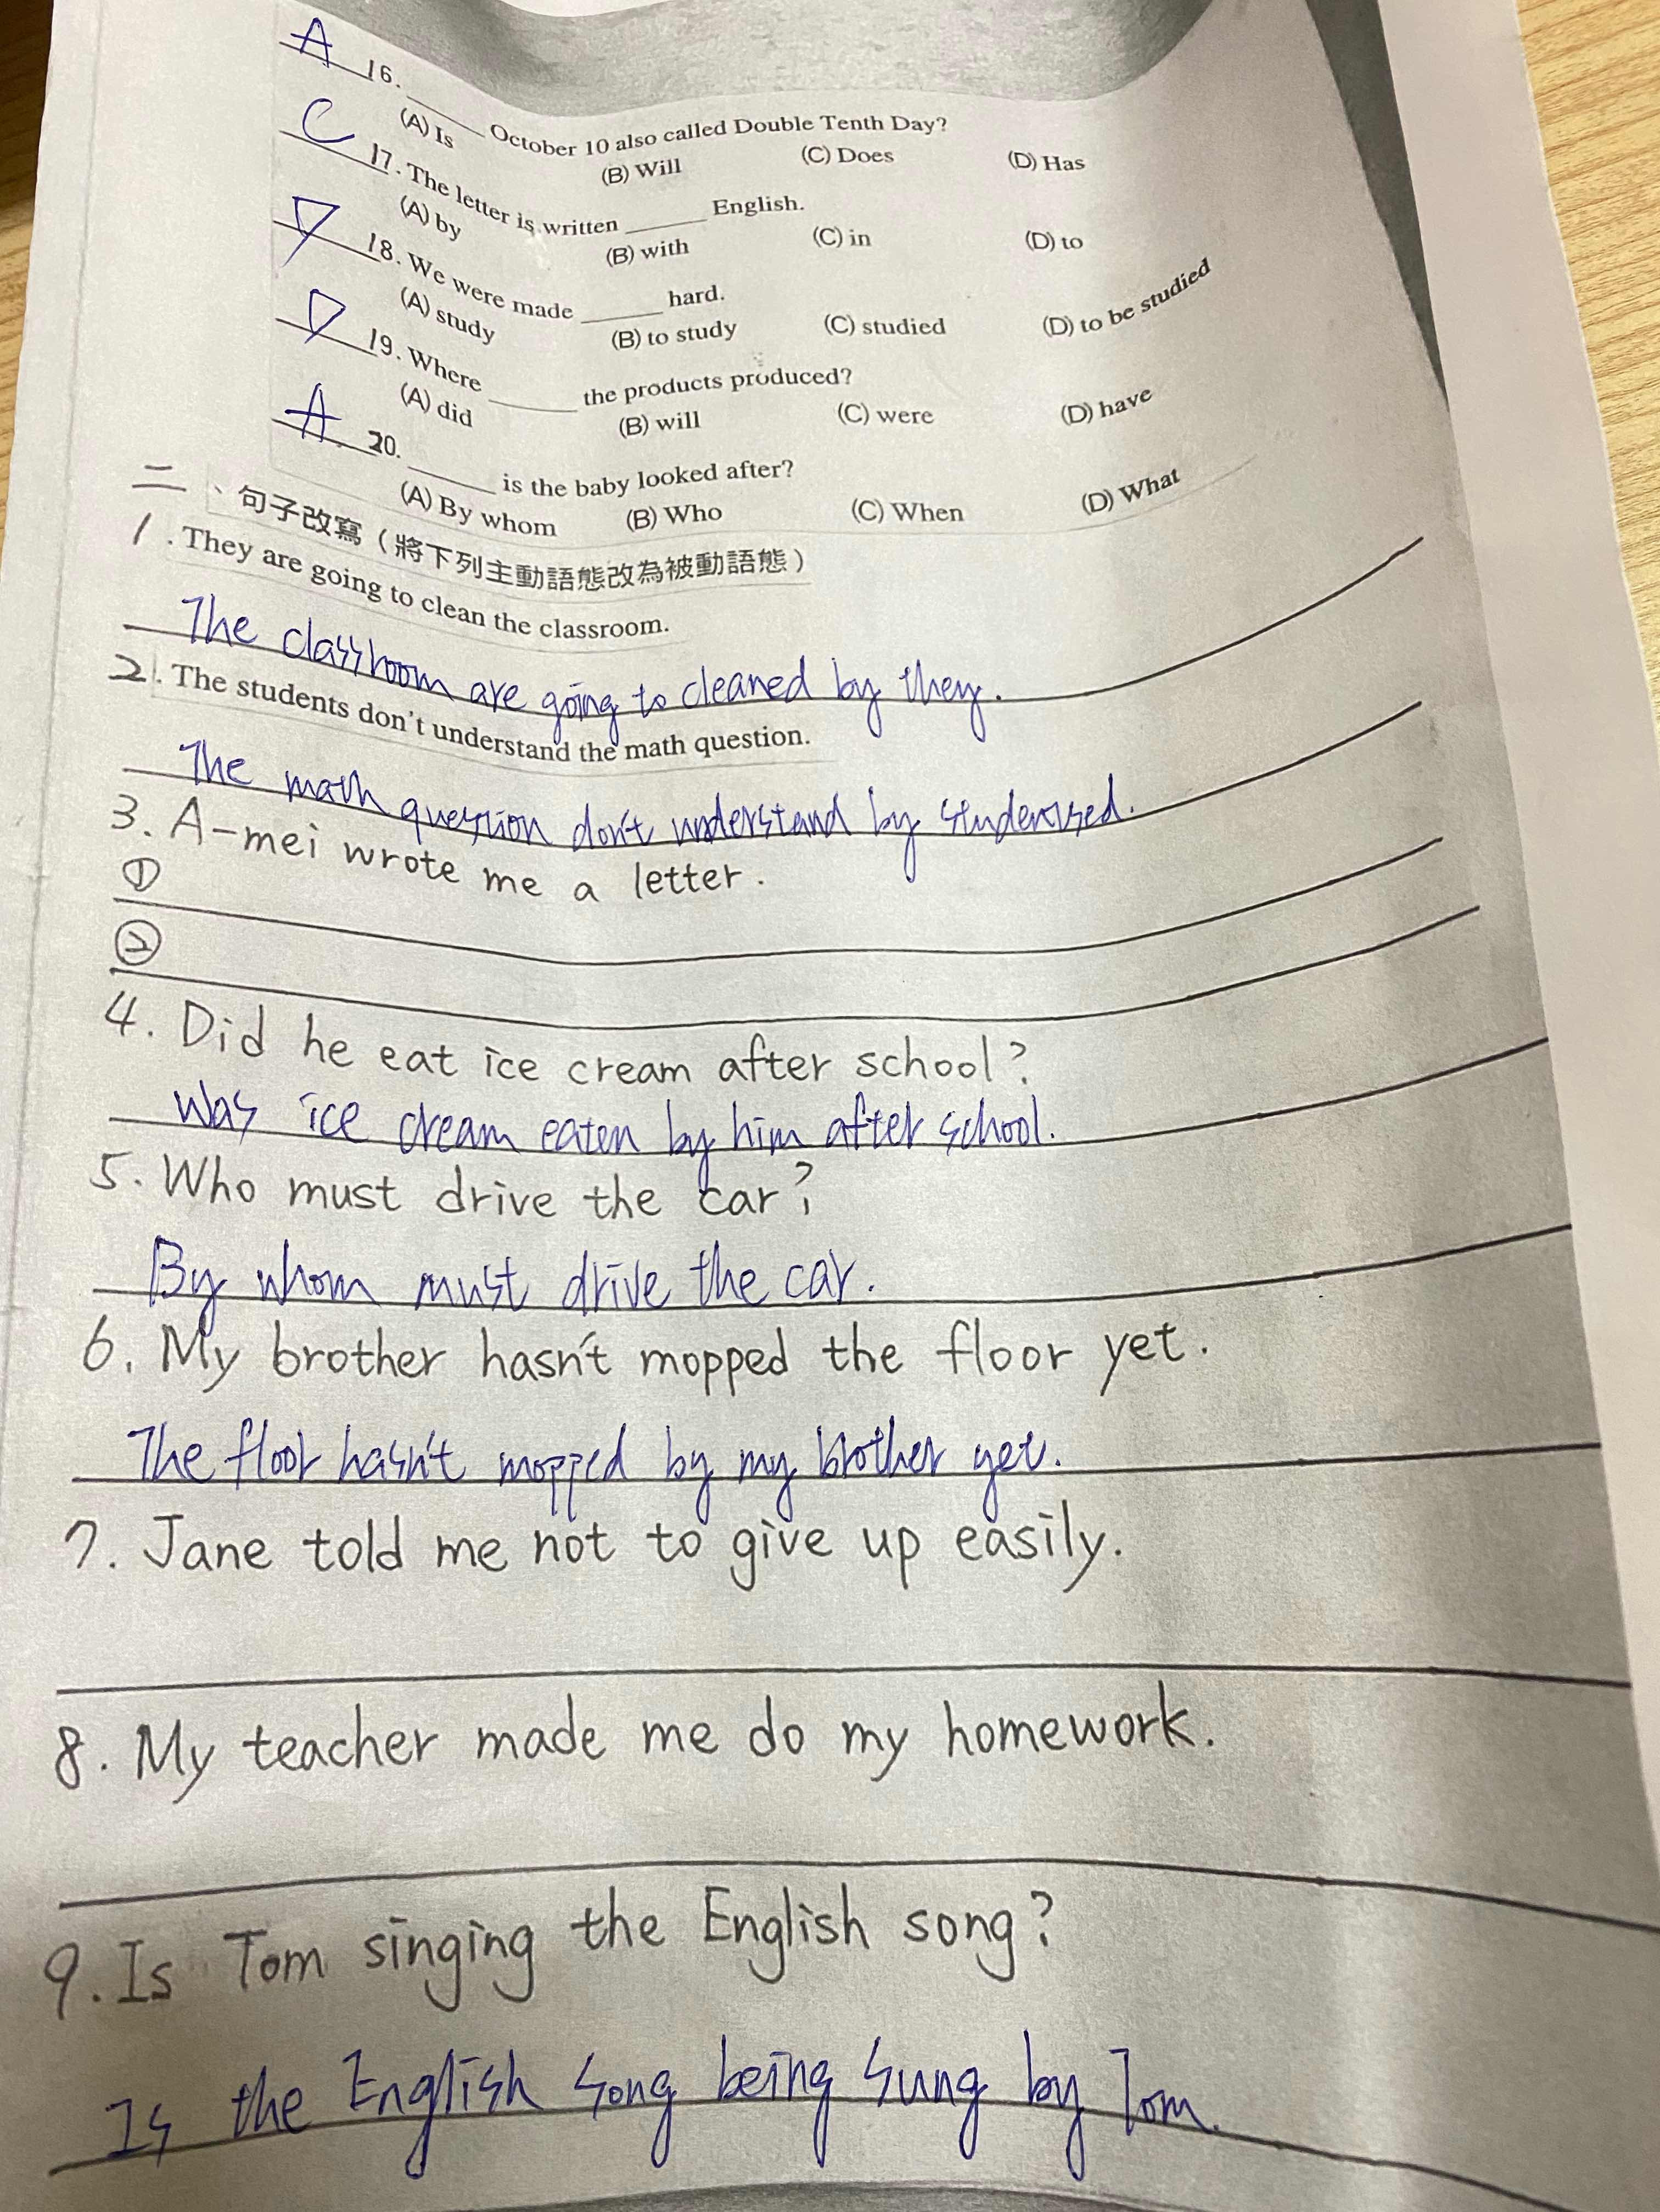 A 16. ______ October 10 also called Double Tenth Day?
(A) Is (B) Will (C) Does (D) Has
C 17. The letter is written ______ English.
(A) by (B) with (C) in (D) to
D 18. We were made ______ hard.
(A) study (B) to study (C) studied (D) to be studied
D 19. Where ______ the products produced?
(A) did (B) will (C) were (D) have
A 20. ______ is the baby looked after?
(A) By whom (B) Who (C) When (D) What
二、句子改寫(將下列主動語態改為被動語態)
1. They are going to clean the classroom.
The classroom are going to cleaned by they.
2. The students don't understand the math question.
The math question don't understand by
3. A-mei wrote me a letter.
①
②
4. Did he eat ice cream after school?
Was ice cream eaten by him after school.
5. Who must drive the car?
By whom must drive the car.
6. My brother hasn't mopped the floor yet.
The floor hasn't mopped by my brother yet.
7. Jane told me not to give up easily.
8. My teacher made me do my homework.
9. Is Tom singing the English song?
Is the English song being sung by Tom.